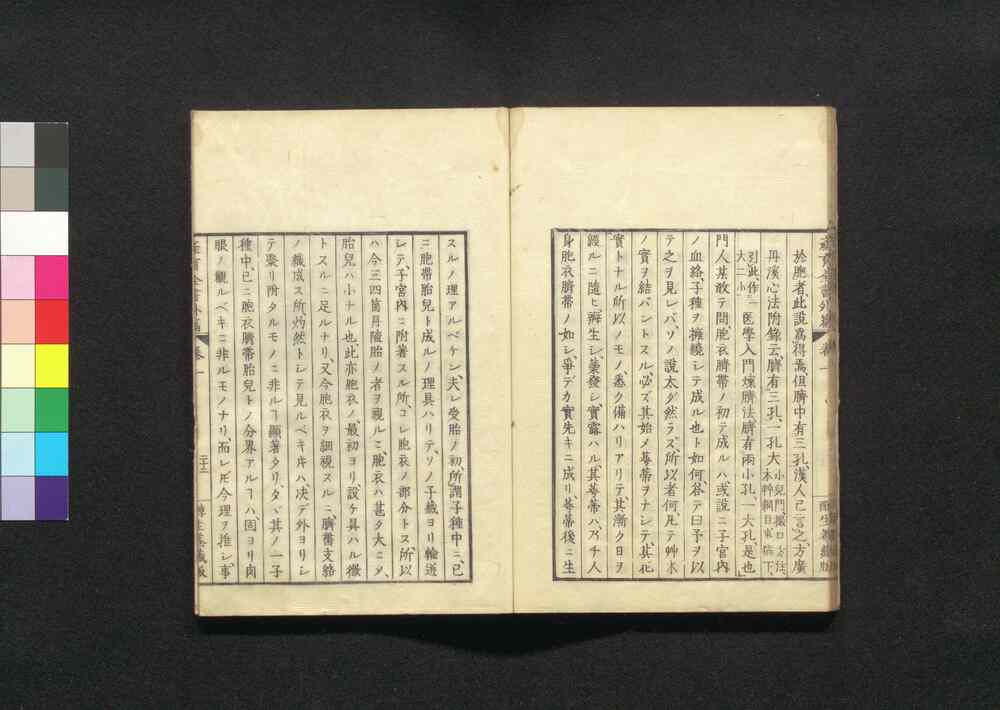 於應者、此說爲得焉、但臍中有三孔、漢人已言之、方廣
丹溪心法附錄云、臍有三孔、一孔大
引此作一大二小
醫學入門煉臍法、臍有兩小孔、一大孔是也
門人某敢テ問、胞衣臍帶ノ初テ成ルハ、或說ニ子宮內
ノ血絡、子種ヲ擁繞シテ成ル也ト如何、答テ曰、予ヲ以
テ之ヲ見レバ、ソノ說太ダ然ラズ、所以者何、凡テ艸木
ノ實ヲ結バントスル、必ズ其始メ蕚蔕ヲナシテ、其花
實トナル所以ノモノ、悉ク備ハリアリテ、其漸ク日ヲ
經ルニ隨ヒ瓣生シ、蘂發シ、實露ハル、其蕚蔕ハ、乃チ人
身胞衣臍帶ノ如シ、爭デカ實先キニ成リ、蕚蔕後ニ生
スルノ理アルベケン、夫レ受胎ノ初、所謂子種中ニ、已
ニ胞帶胎兒ト成ルノ理具ハリテ、ソノ子戴ヨリ輸送
シテ、子宮內ニ附著スル所、コレ胞衣ノ部分トス、所以
ハ今三四箇月墮胎ノ者ヲ視ルニ、胞衣ハ甚ダ大ニシテ、
胎兒ハ小ナル也、此亦胞衣ノ最初ヨリ設ケ具ハル徵
トスルニ足ルナリ、又今胞衣ヲ細視スルニ、臍帶支絡
ノ織成ス所、灼然トシテ見ルベキ片ハ、決デ外ヨリシ
テ聚リ附タルモノニ非ルヿ顯著タリ、タヾ其ノ一子
種中、已ニ胞衣臍帶胎兒トノ分界アルヿハ、固ヨリ肉
眼ノ觀ルベキニ非ルモノナリ、而レ𪜈今理ヲ推シ、事
卷一
二十三